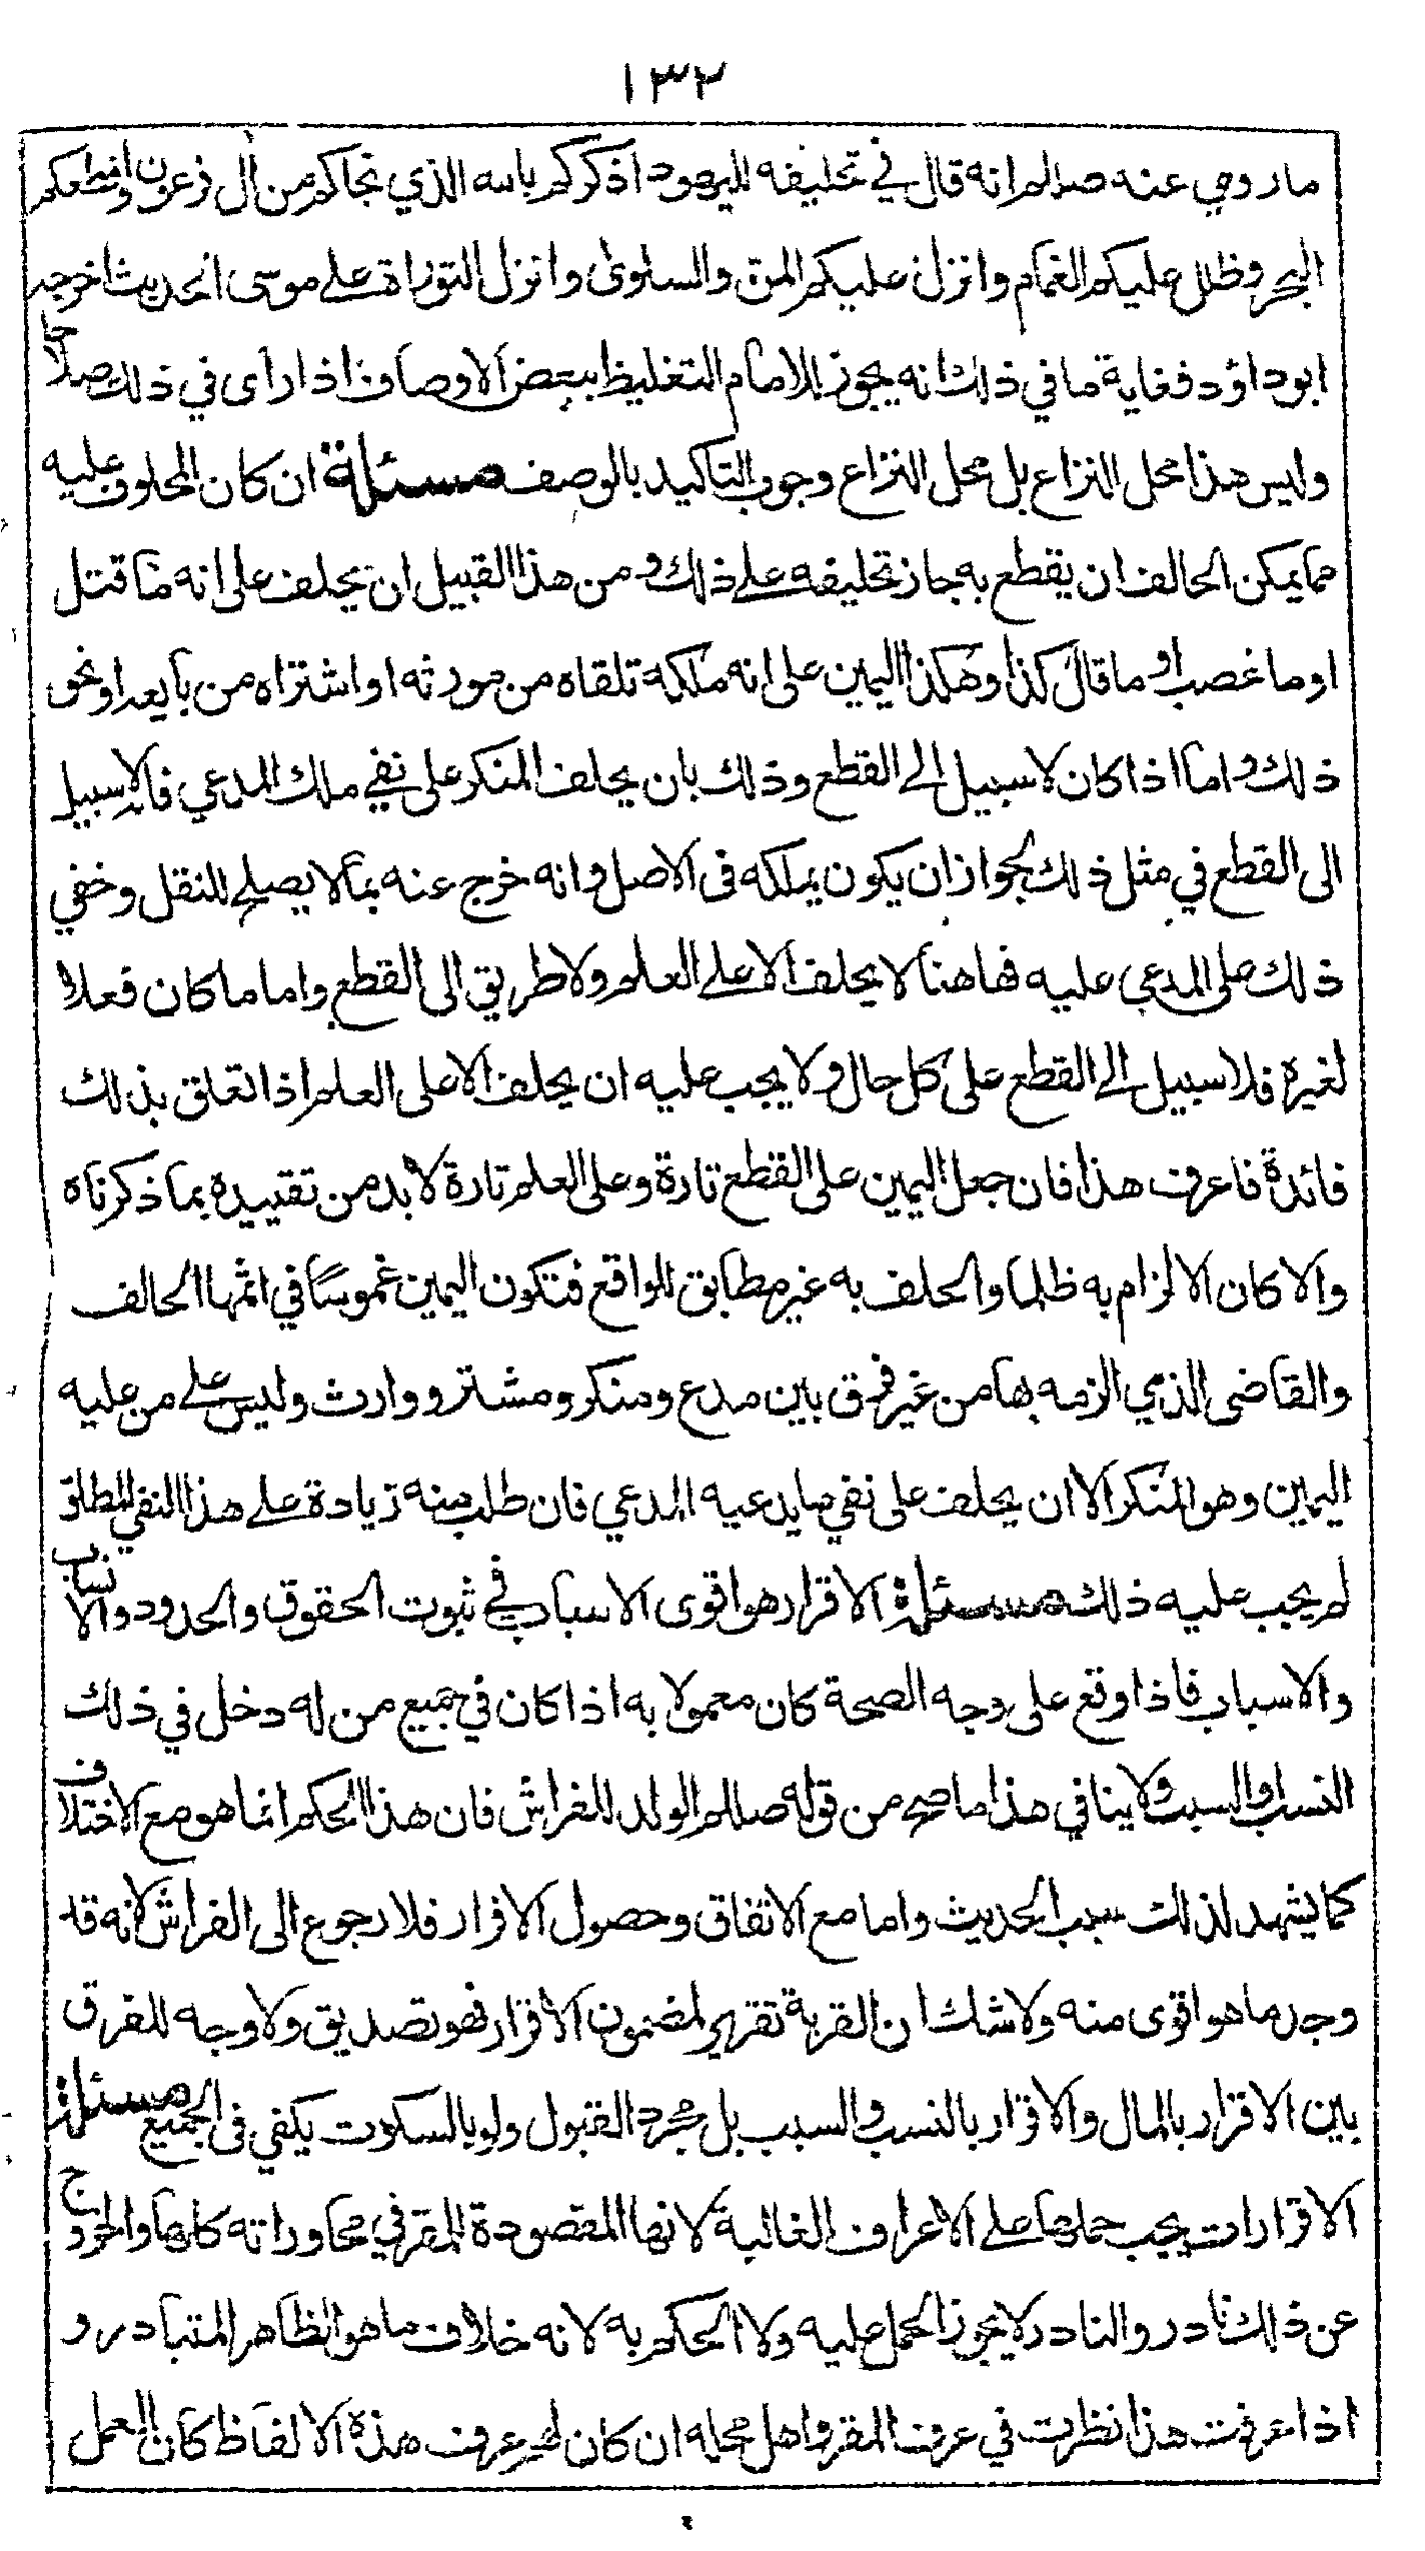 ١٣٢
ما روي عنه صللم انه قال في تحليفه لليهود اذكركم بالله الذي نجاكم من آل فرعون واقطعكم
البحر وظلل عليكم الغمام وانزل عليكم المن والسلوى وانزل التوراة على موسى الحديث اخرجه
ابوداؤد فغاية ما في ذلك انه يجوز للامام التغليظ ببعض الاوصاف اذا رأى في ذلك صلاحا
وليس هذا محل النزاع بل محل النزاع وجوب التاكيد بالوصف مسئلة ان كان المحلوف عليه
مما يمكن الحالف ان يقطع به جاز تحليفه على ذلك ومن هذا القبيل ان يحلف على انه ما قتل
او ما غصب او ما قال كذا وهكذا اليمين على انه ملكه تلقاه من مورثه او اشتراه من بايعه او نحو
ذلك واما اذا كان لا سبيل الى القطع وذلك بان يحلف المنكر على نفي ملك المدعي فانه لا سبيل
الى القطع في مثل ذلك لجواز ان يكون يملكه فى الاصل وانه خرج عنه بما لا يصلح للنقل وخفي
ذلك على المدعى عليه فهاهنا لا يحلف الا على العلم ولا طريق الى القطع واما ما كان فعلا
لغيره فلا سبيل الى القطع على كل حال ولا يجب عليه ان يحلف الا على العلم اذا تعلق بذلك
فائدة فاعرف هذا فان جعل اليمين على القطع تارة وعلى العلم تارة لا بد من تقييده بما ذكرناه
والا كان الالزام به ظلما والحلف به غير مطابق للواقع فتكون اليمين غموسا في اثمها الحالف
والقاضى الذي الزمه بها من غير فرق بين مدع ومنكر ومشتر ووارث وليس على من عليه
اليمين وهو المنكر الا ان يحلف على نفي ما يدعيه المدعي فان طلب منه زيادة على هذا النفي المطلق
لم يجب عليه ذلك مسئلة الاقرار هو اقوى الاسباب في ثبوت الحقوق والحدود والانساب
والاسباب فاذا وقع على وجه الصحة كان معمولا به اذا كان في جميع من له دخل في ذلك
النسب والسبب ولا ينافي هذا ما صح من قوله صللم الولد للفراش فان هذا الحكم انما هو مع الاختلاف
كما يشهد لذلك سبب الحديث واما مع الاتفاق وحصول الاقرار فلا رجوع الى الفراش لانه قد
وجد ما هو اقوى منه ولا شك ان القرية تقرير لمضمون الاقرار فهو تصديق ولا وجه للفرق
بين الاقرار بالمال والاقرار بالنسب والسبب بل مجرد القبول ولو بالسكوت يكفي فى الجميع مسئلة
الاقرارات يجب حملها على الاعراف الغالبة لانها المقصودة للمقر في محاوراته كلها والخروج
عن ذلك نادر والنادر لا يجوز الحمل عليه ولا الحكم به لانه خلاف ما هو الظاهر المتبادر و
اذا عرفت هذا نظرت في عرف المقر واهل محله ان كان لهم عرف هذه الالفاظ كان العمل